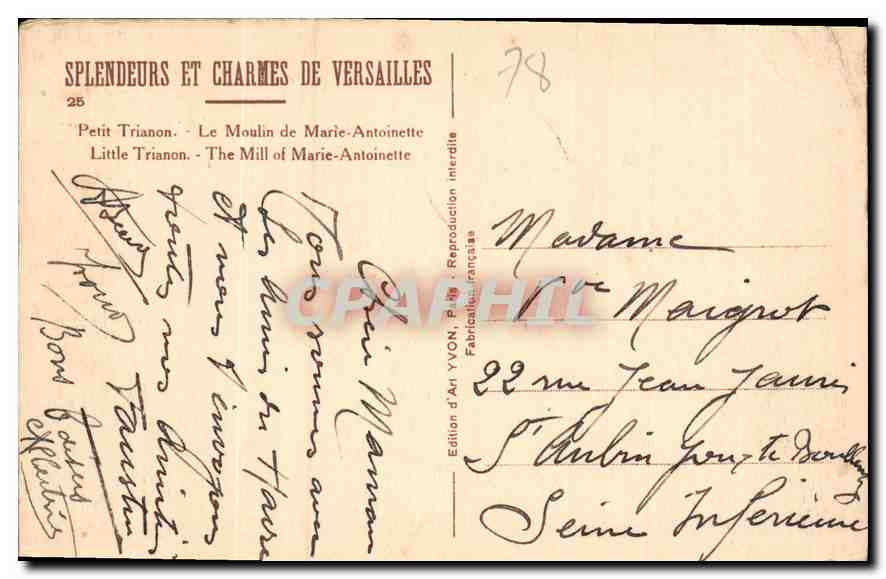 SPLENDEURS ET CHARMES DE VERSAILLES
25
Petit Trianon. - Le Moulin de Marie-Antoinette
Little Trianon. - The Mill of Marie-Antoinette
78
Chère Maman
Nous sommes avec
des Amis du Havre
et nous t'envoyons
toutes nos Amitiés
Faustine
Bons baisers
Edition d'Art YVON, Paris - Reproduction interdite
Fabrication française
Madame
Vve Maigrot
22 rue Jean Jaurès
St Aubin
Seine Inférieure
CPARPHIL